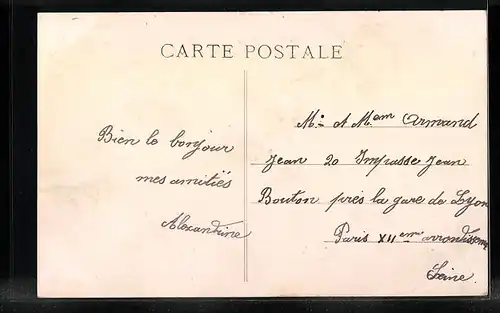 CARTE POSTALE
Bien le bonjour
mes amitiés
Alexandrine
Mr. et Mem Armand
Jean 20 Impasse Jean
Bouton près la gare de Lyon
Paris XIIeme arrondissem
Seine.